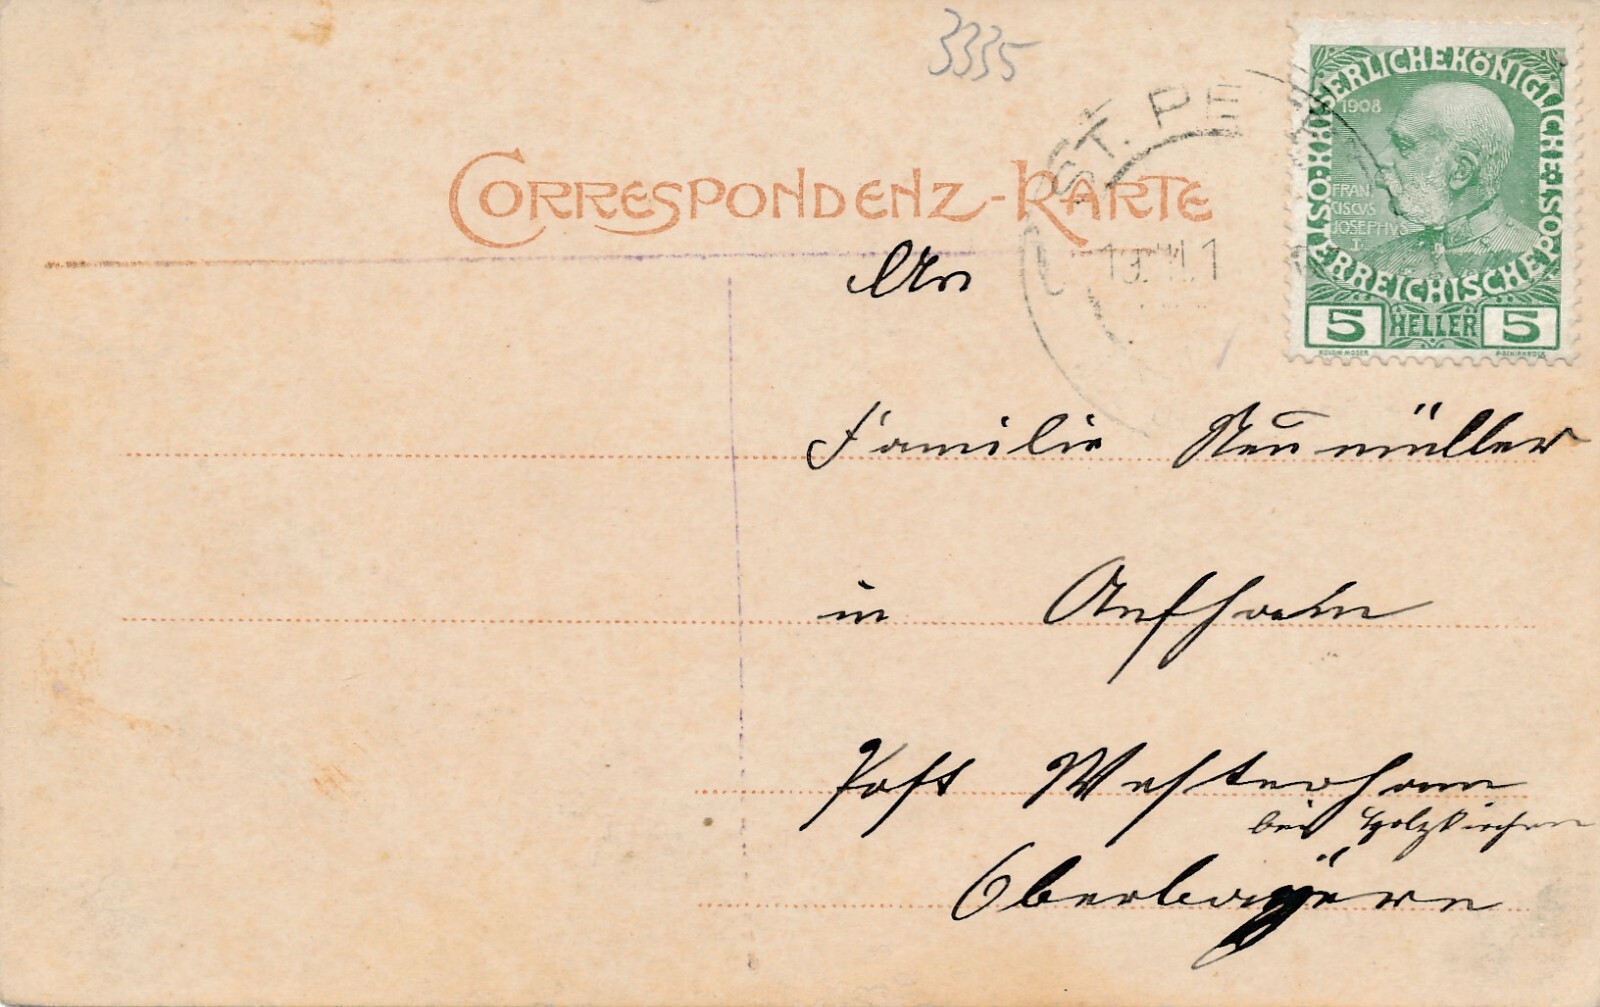 3335
CORRESPONDENZ-KARTE
ST. PE
KAISERLICHE KÖNIGLICHE ÖSTERREICHISCHE POST
1908
FRAN
CISCVS
JOSEPHVS
I
5 HELLER 5
KOLOM. MOSER
An
Familie Neumüller
in Aufham
Post Westerham
bei Holzkirchen
Oberbayern